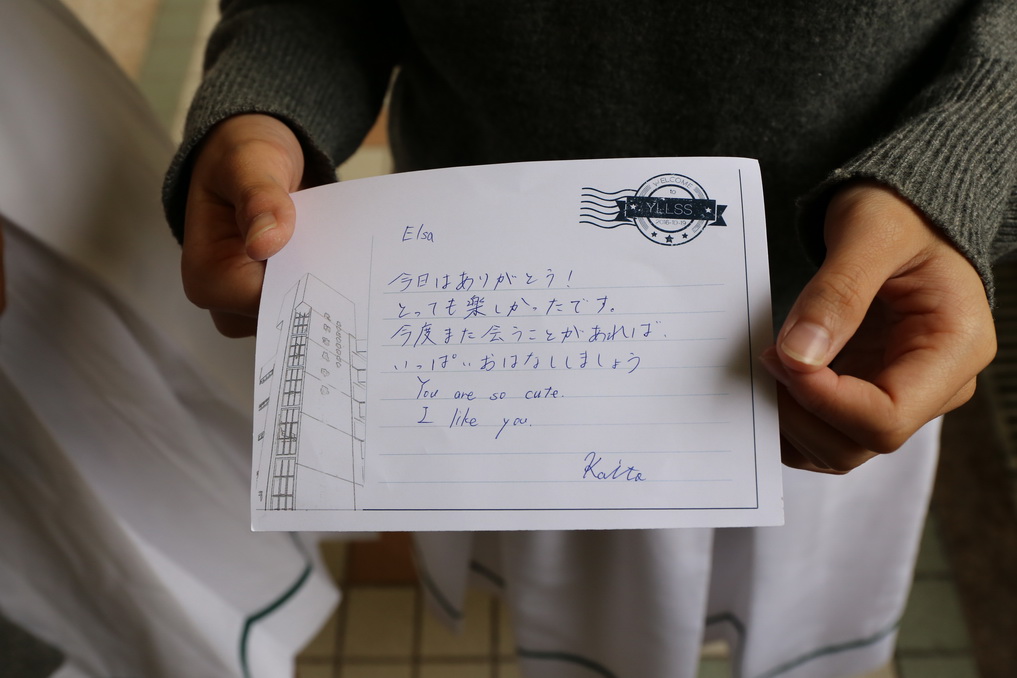 WELCOME
to
YLLSS
2018-10-19
Elsa
今日はありがとう!
とっても楽しかったです。
今度また会うことがあれば、
いっぱいおはなししましょう
You are so cute.
I like you.
Kaito